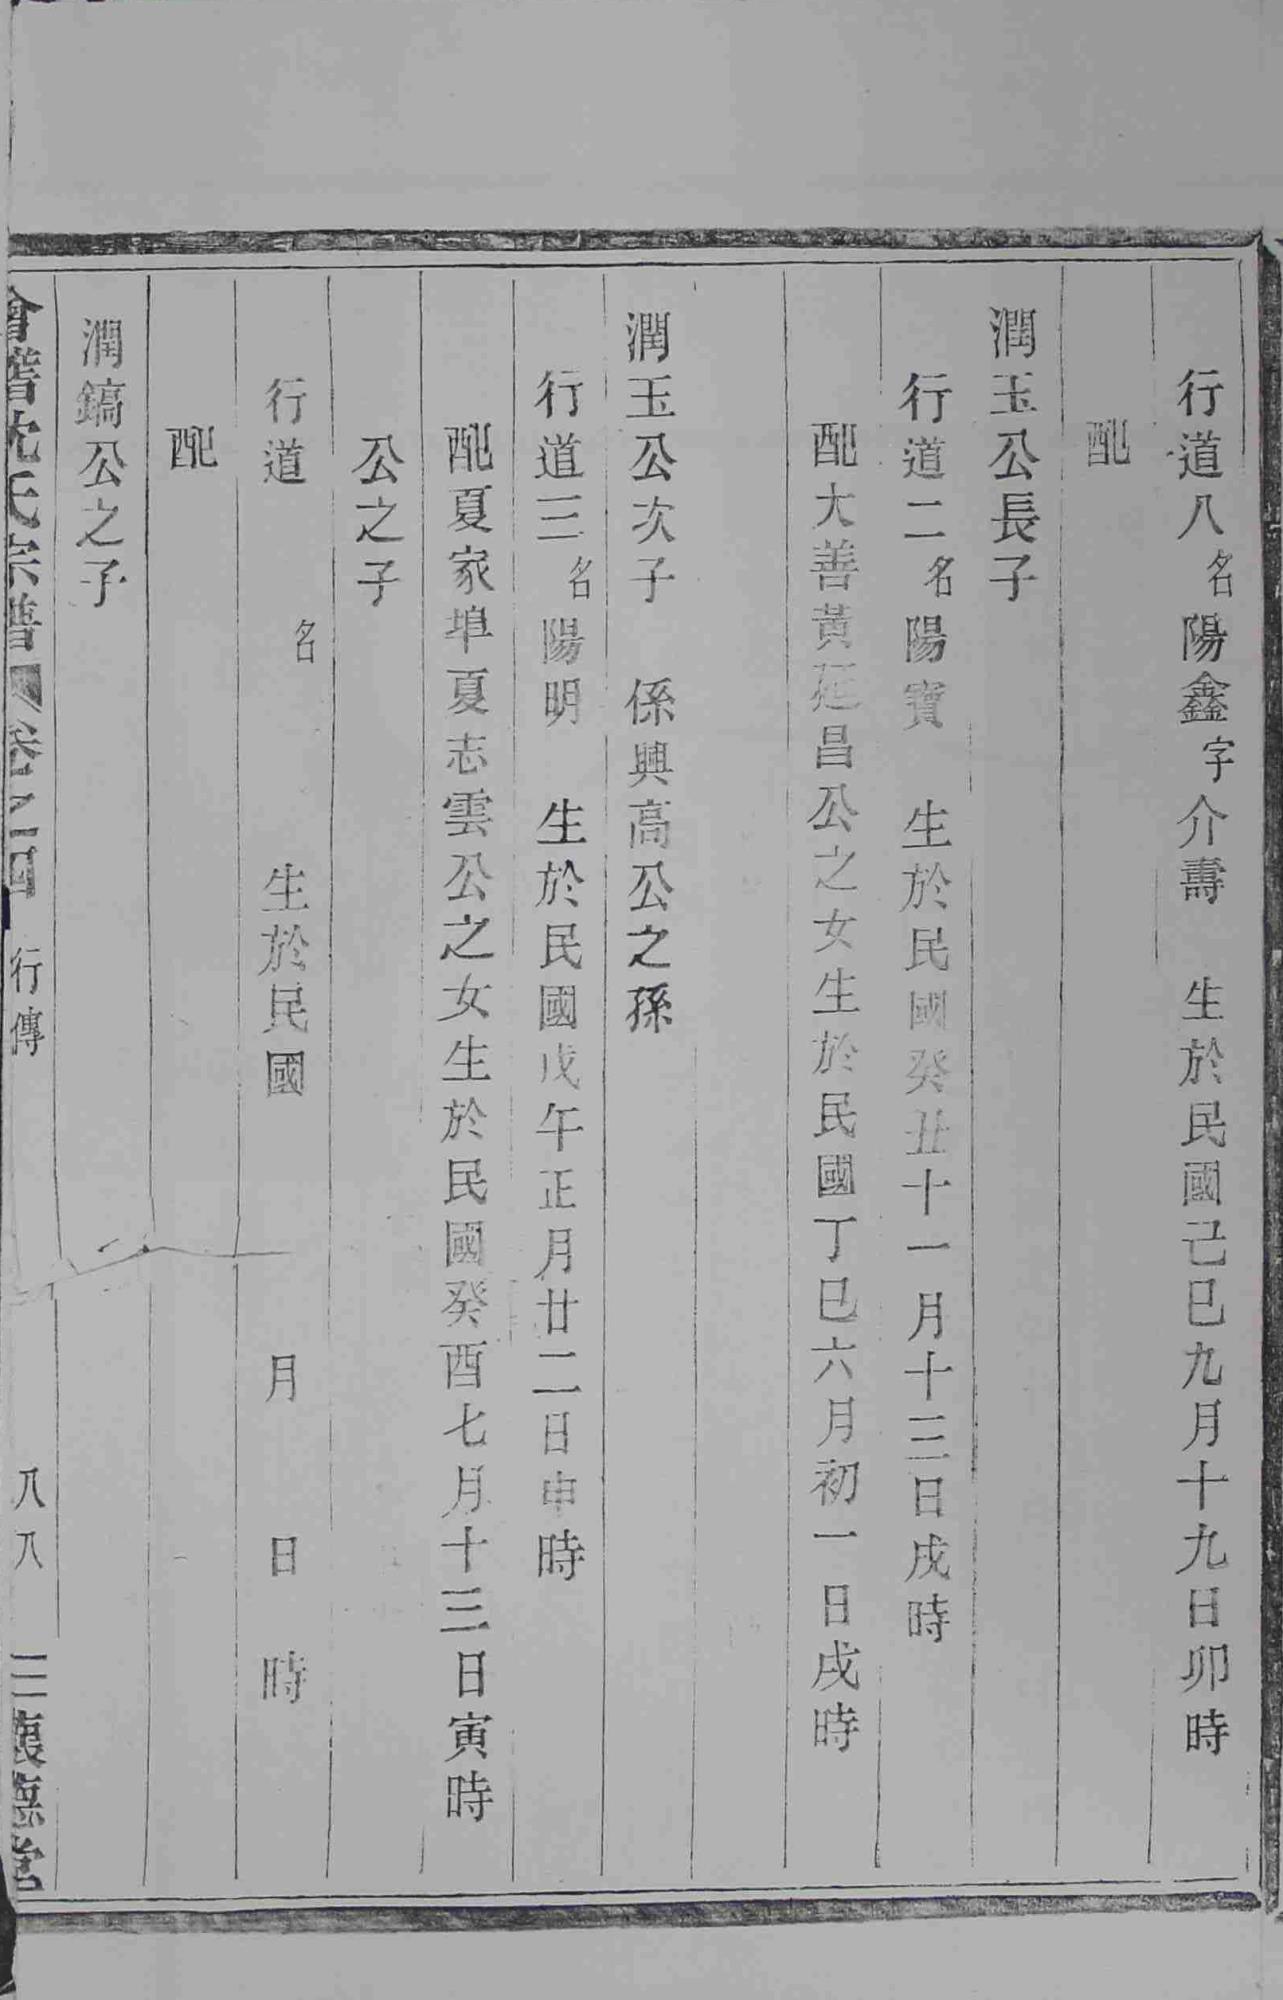 行道八名陽鑫字介壽　生於民國己巳九月十九日卯時
配
潤玉公長子
行道二名陽寶　生於民國癸丑十一月十三日戌時
配大善黃延昌公之女生於民國丁巳六月初一日戌時
潤玉公次子　係興高公之孫
行道三名陽明　生於民國戊午正月廿二日申時
配夏家埠夏志雲公之女生於民國癸酉七月十三日寅時
公之子
行道　名　生於民國　月　日　時
配
潤鎬公之子
會稽沈氏宗譜　卷之四　行傳　八八　三褱德堂